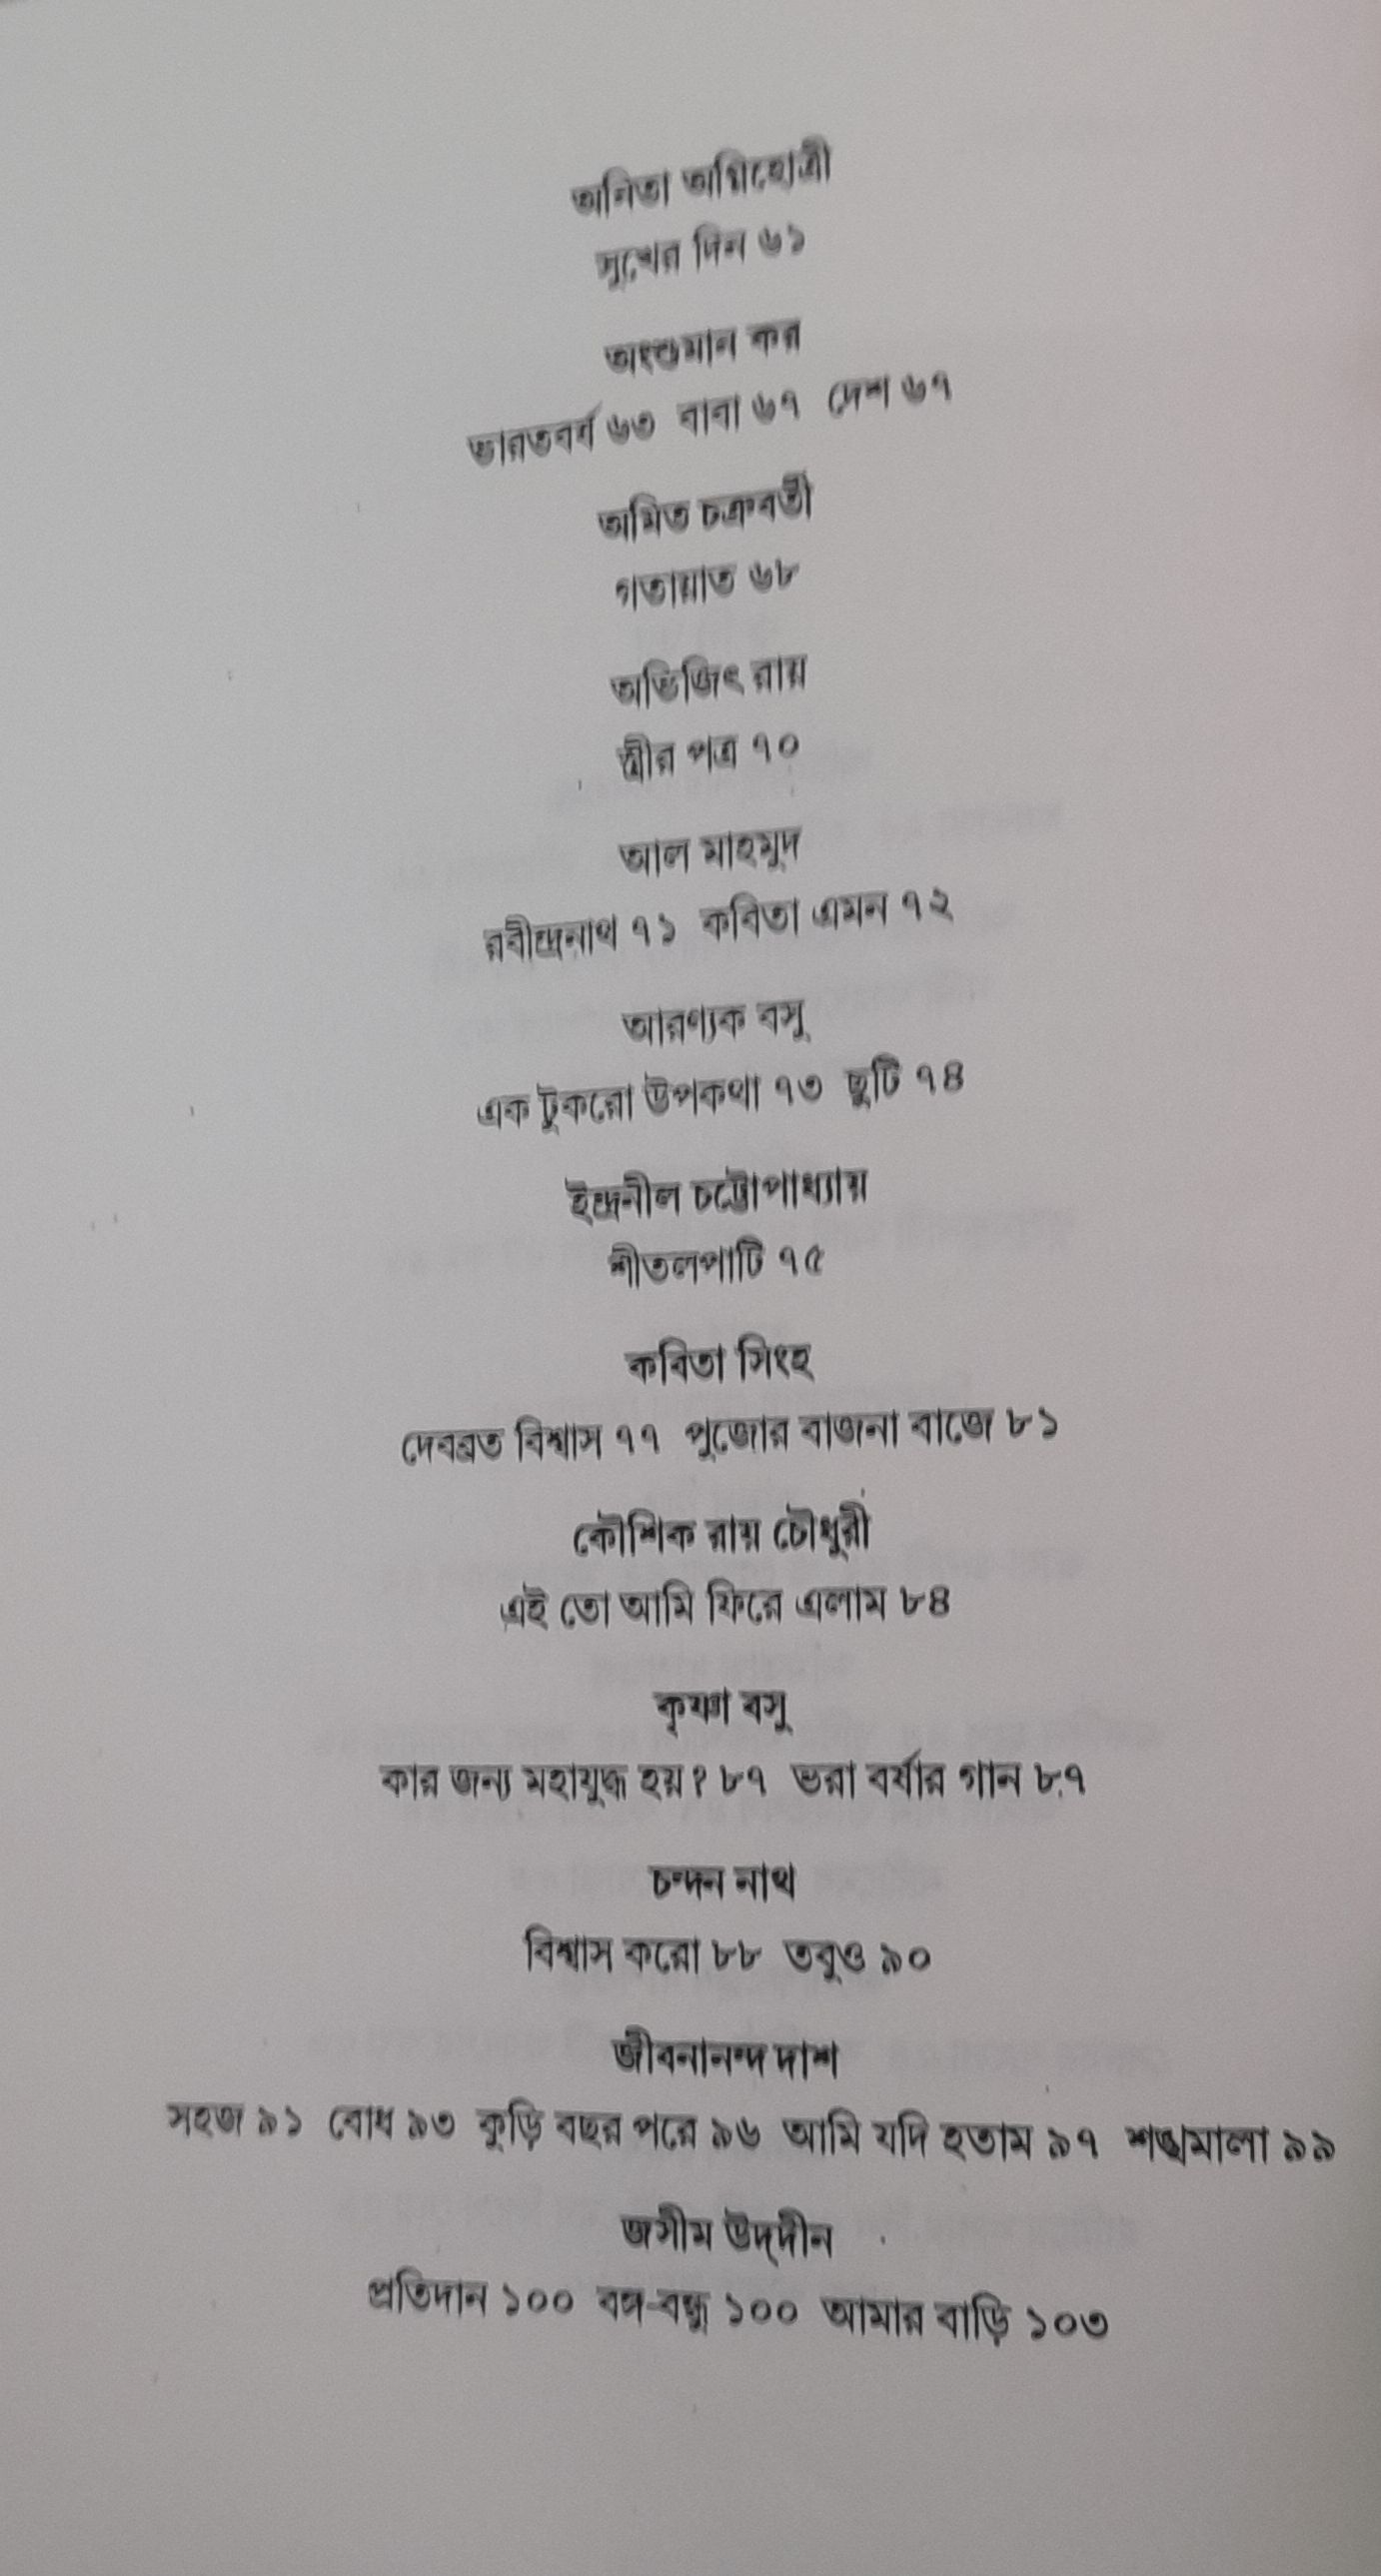 অনিতা অগ্নিহোত্রী
সুখের দিন ৬১
অংশুমান কর
ভারতবর্ষ ৬৩ বাবা ৬৭ দেশ ৬৭
অমিত চক্রবর্তী
গতায়াত ৬৮
অভিজিৎ রায়
স্ত্রীর পত্র ৭০
আল মাহমুদ
রবীন্দ্রনাথ ৭১ কবিতা এমন ৭২
আরণ্যক বসু
এক টুকরো উপকথা ৭৩ ছুটি ৭৪
ইন্দ্রনীল চট্টোপাধ্যায়
শীতলপাটি ৭৫
কবিতা সিংহ
দেবব্রত বিশ্বাস ৭৭ পুজোর বাজনা বাজে ৮১
কৌশিক রায় চৌধুরী
এই তো আমি ফিরে এলাম ৮৪
কৃষ্ণা বসু
কার জন্য মহাযুদ্ধ হয়? ৮৭ ভরা বর্ষার গান ৮৭
চন্দন নাথ
বিশ্বাস করো ৮৮ তবুও ৯০
জীবনানন্দ দাশ
সহজ ৯১ বোধ ৯৩ কুড়ি বছর পরে ৯৬ আমি যদি হতাম ৯৭ শঙ্খমালা ৯৯
জসীম উদ্‌দীন
প্রতিদান ১০০ বঙ্গ-বন্ধু ১০০ আমার বাড়ি ১০৩